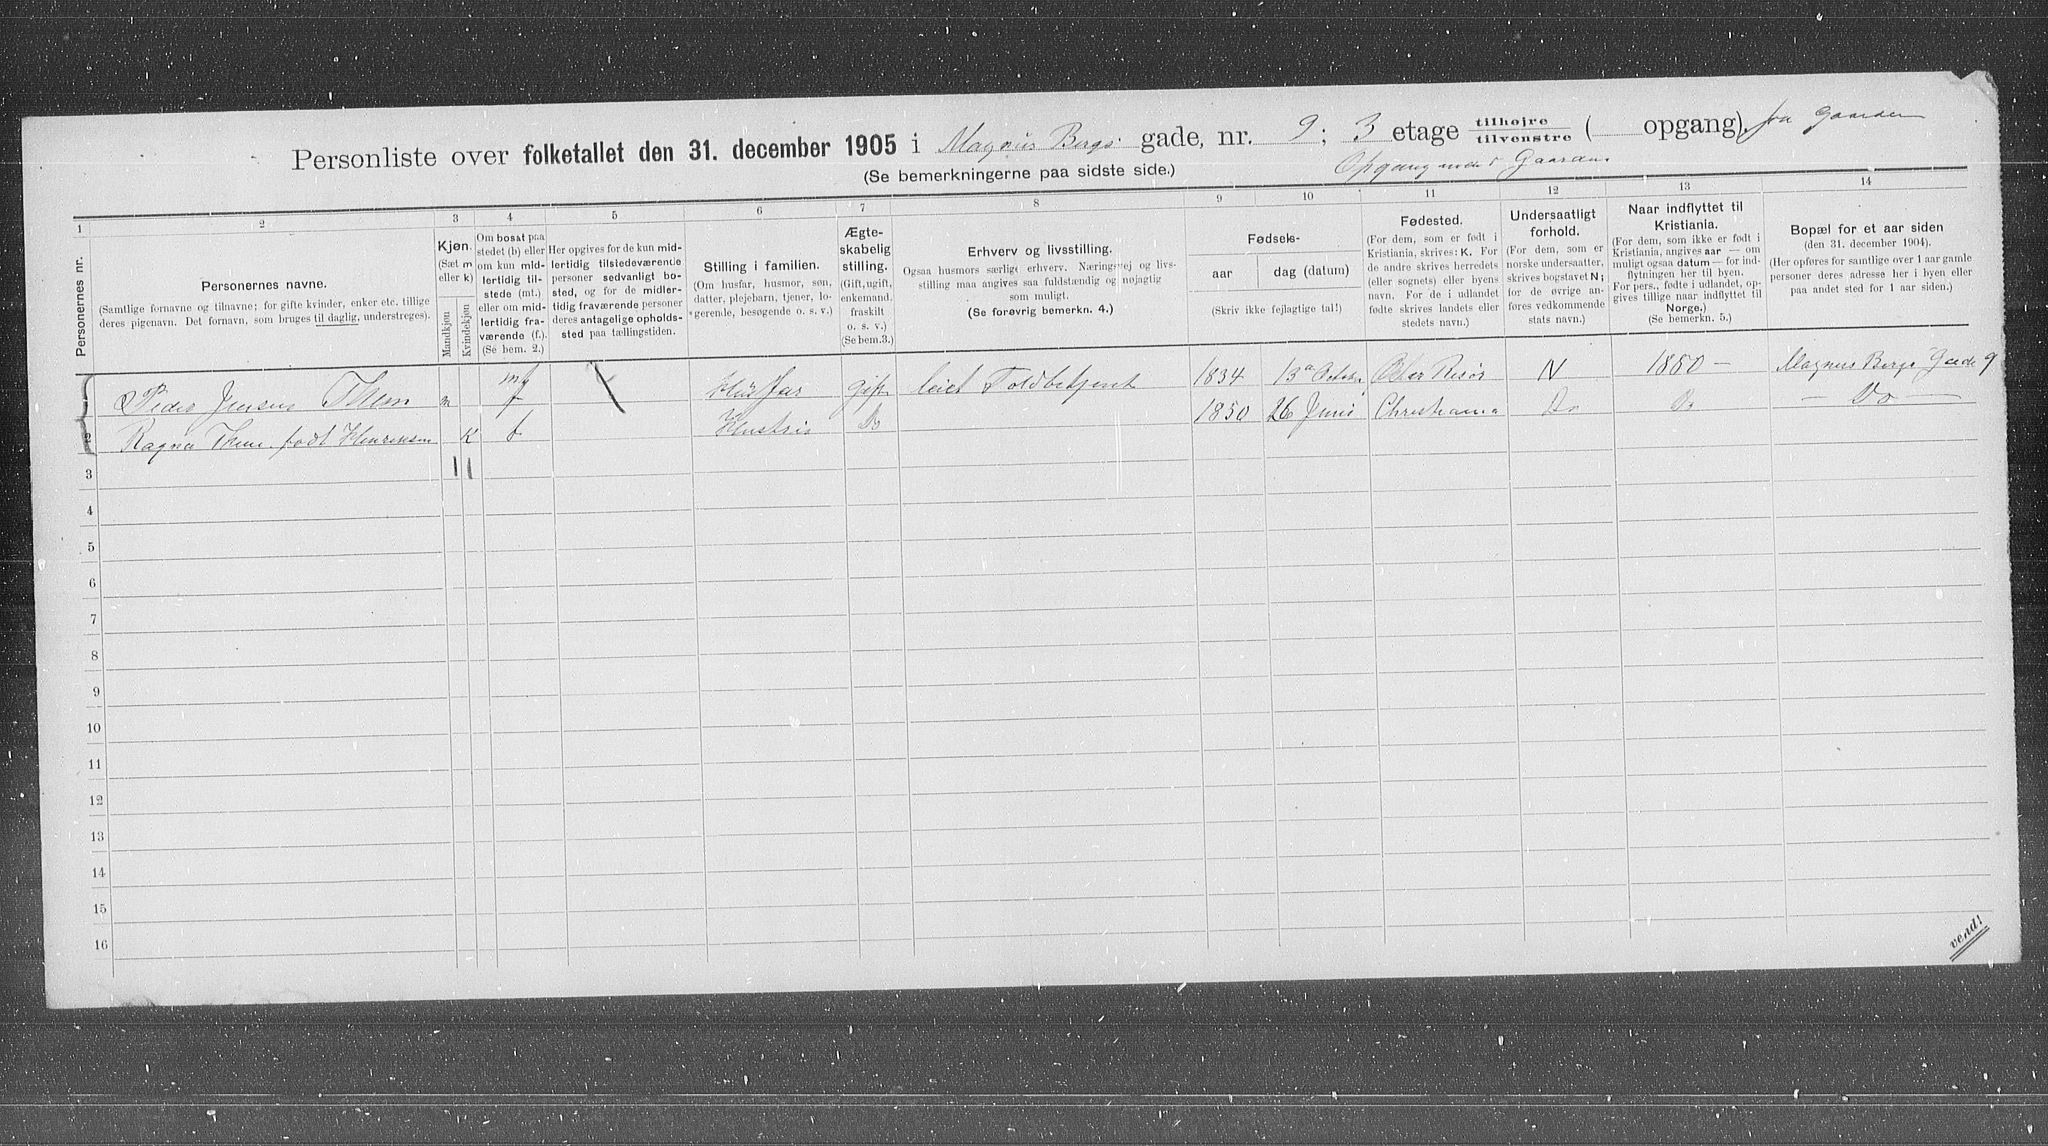 Personliste over folketallet den 31. december 1905 i Magnus Bergs gade, nr. 9; 3 etage tilhøjre tilvenstre ( opgang). fra Gaarden
(Se bemerkningerne paa sidste side.)
Opgang Gaarden.
1 2 3 4 5 6 7 8 9 10 11 12 13 14
Personernes nr.
Personernes navne.
(Samtlige fornavne og tilnavne; for gifte kvinder, enker etc. tillige
deres pigenavn. Det fornavn, som bruges til daglig, understreges).
Kjøn.
(Sæt m
eller k)
Mandkjøn
Kvindekjøn
Om bosat paa
stedet (b) eller
om kun mid-
lertidig til-
stede (mt.)
eller om mid-
lertidig fra-
værende (f.).
(Se bem. 2.)
Her opgives for de kun mid-
lertidig tilstedeværende
personer sedvanligt bo-
sted, og for de midler-
tidig fraværende personer
deres antagelige opholds-
sted paa tællingstiden.
Stilling i familien.
(Om husfar, husmor, søn,
datter, plejebarn, tjener, lo-
gerende, besøgende o. s. v.)
Ægte-
skabelig
stilling.
(Gift, ugift,
enkemand,
fraskilt
o. s. v.)
(Se bem.3.)
Erhverv og livsstilling.
Ogsaa husmors særlige erhverv. Næringsvej og livs-
stilling maa angives saa fuldstændig og nøjagtig
som muligt.
(Se forøvrig bemerkn. 4.)
Fødsels-
aar dag (datum)
(Skriv ikke fejlagtige tal!)
Fødested.
(For dem, som er født i
Kristiania, skrives: K. For
de andre skrives herredets
(eller sognets) eller byens
navn. For de i udlandet
fødte skrives landets eller
stedets navn.)
Undersaatligt
forhold.
(For dem, som er
norske undersaatter,
skrives bogstavet N;
for de øvrige an-
føres vedkommende
stats navn.)
Naar indflyttet til
Kristiania.
(For dem, som ikke er født i
Kristiania, angives aar — om
muligt ogsaa datum — for ind-
flytningen her til byen.
For pers., fødte i udlandet, op-
gives tillige naar indflyttet til
Norge.)
(Se bemerkn. 5.)
Bopæl for et aar siden
(den 31. december 1904).
(Her opføres for samtlige over 1 aar gamle
personer deres adresse her i byen eller
paa andet sted for 1 aar siden.)
Peder Jensen Them m Husfar gift Toldbetjent 1834 13de Octobr Øster Risør N 1850 — Magnus Bergs Gade 9
Ragna Them født Henriksen K b Hustru Do 1850 26 Juni Christiania Do Do — Do —
3
4
5
6
7
8
9
10
11
12
13
14
15
16
vend!